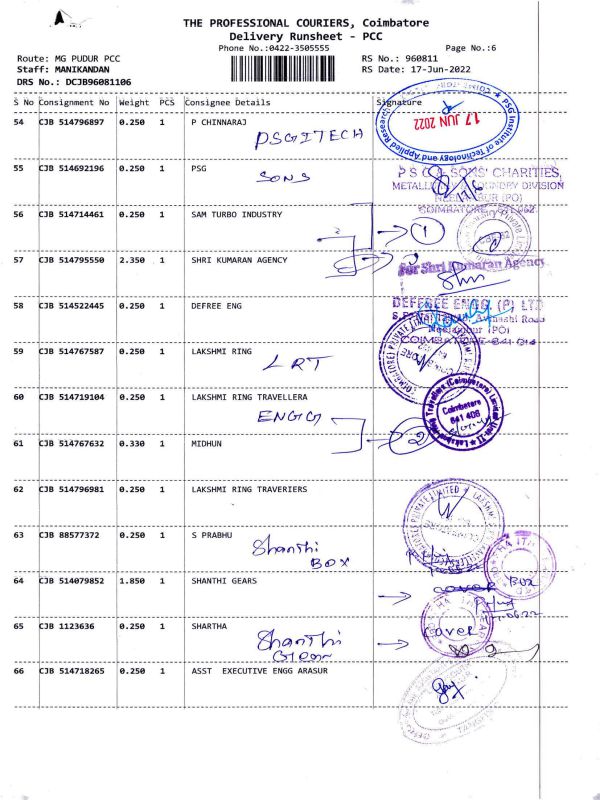 THE PROFESSIONAL COURIERS, Coimbatore
Delivery Runsheet - PCC
Phone No.:0422-3505555
Page No.:6
Route: MG PUDUR PCC
RS No.: 960811
Staff: MANIKANDAN
RS Date: 17-Jun-2022
DRS No.: DCJB96081106
S No Consignment No Weight PCS Consignee Details Signature
54 CJB 514796897 0.250 1 P CHINNARAJ
PSGITECH
PSG Institute of Technology and Applied Research
17 JUN 2022
55 CJB 514692196 0.250 1 PSG
SONS
P S G & SONS' CHARITIES,
METALLURGY & FOUNDRY DIVISION
NEELAMBUR (PO)
COIMBATORE - 641 062
56 CJB 514714461 0.250 1 SAM TURBO INDUSTRY
1
57 CJB 514795550 2.350 1 SHRI KUMARAN AGENCY
For Shri Kumaran Agency
58 CJB 514522445 0.250 1 DEFREE ENG
DEFEREE ENGG. (P) LTD
Avinashi Road
Neelambur (PO)
COIMBATORE-641 014
59 CJB 514767587 0.250 1 LAKSHMI RING
LRT
60 CJB 514719104 0.250 1 LAKSHMI RING TRAVELLERA
ENGG
Lakshmi Ring Travellers (Coimbatore) Limited
Coimbatore
641 406
61 CJB 514767632 0.330 1 MIDHUN
2
62 CJB 514796981 0.250 1 LAKSHMI RING TRAVERIERS
63 CJB 88577372 0.250 1 S PRABHU
Shanthi
BOX
64 CJB 514079852 1.850 1 SHANTHI GEARS
cover Box
65 CJB 1123636 0.250 1 SHARTHA
Shanthi
Gear
cover
66 CJB 514718265 0.250 1 ASST EXECUTIVE ENGG ARASUR